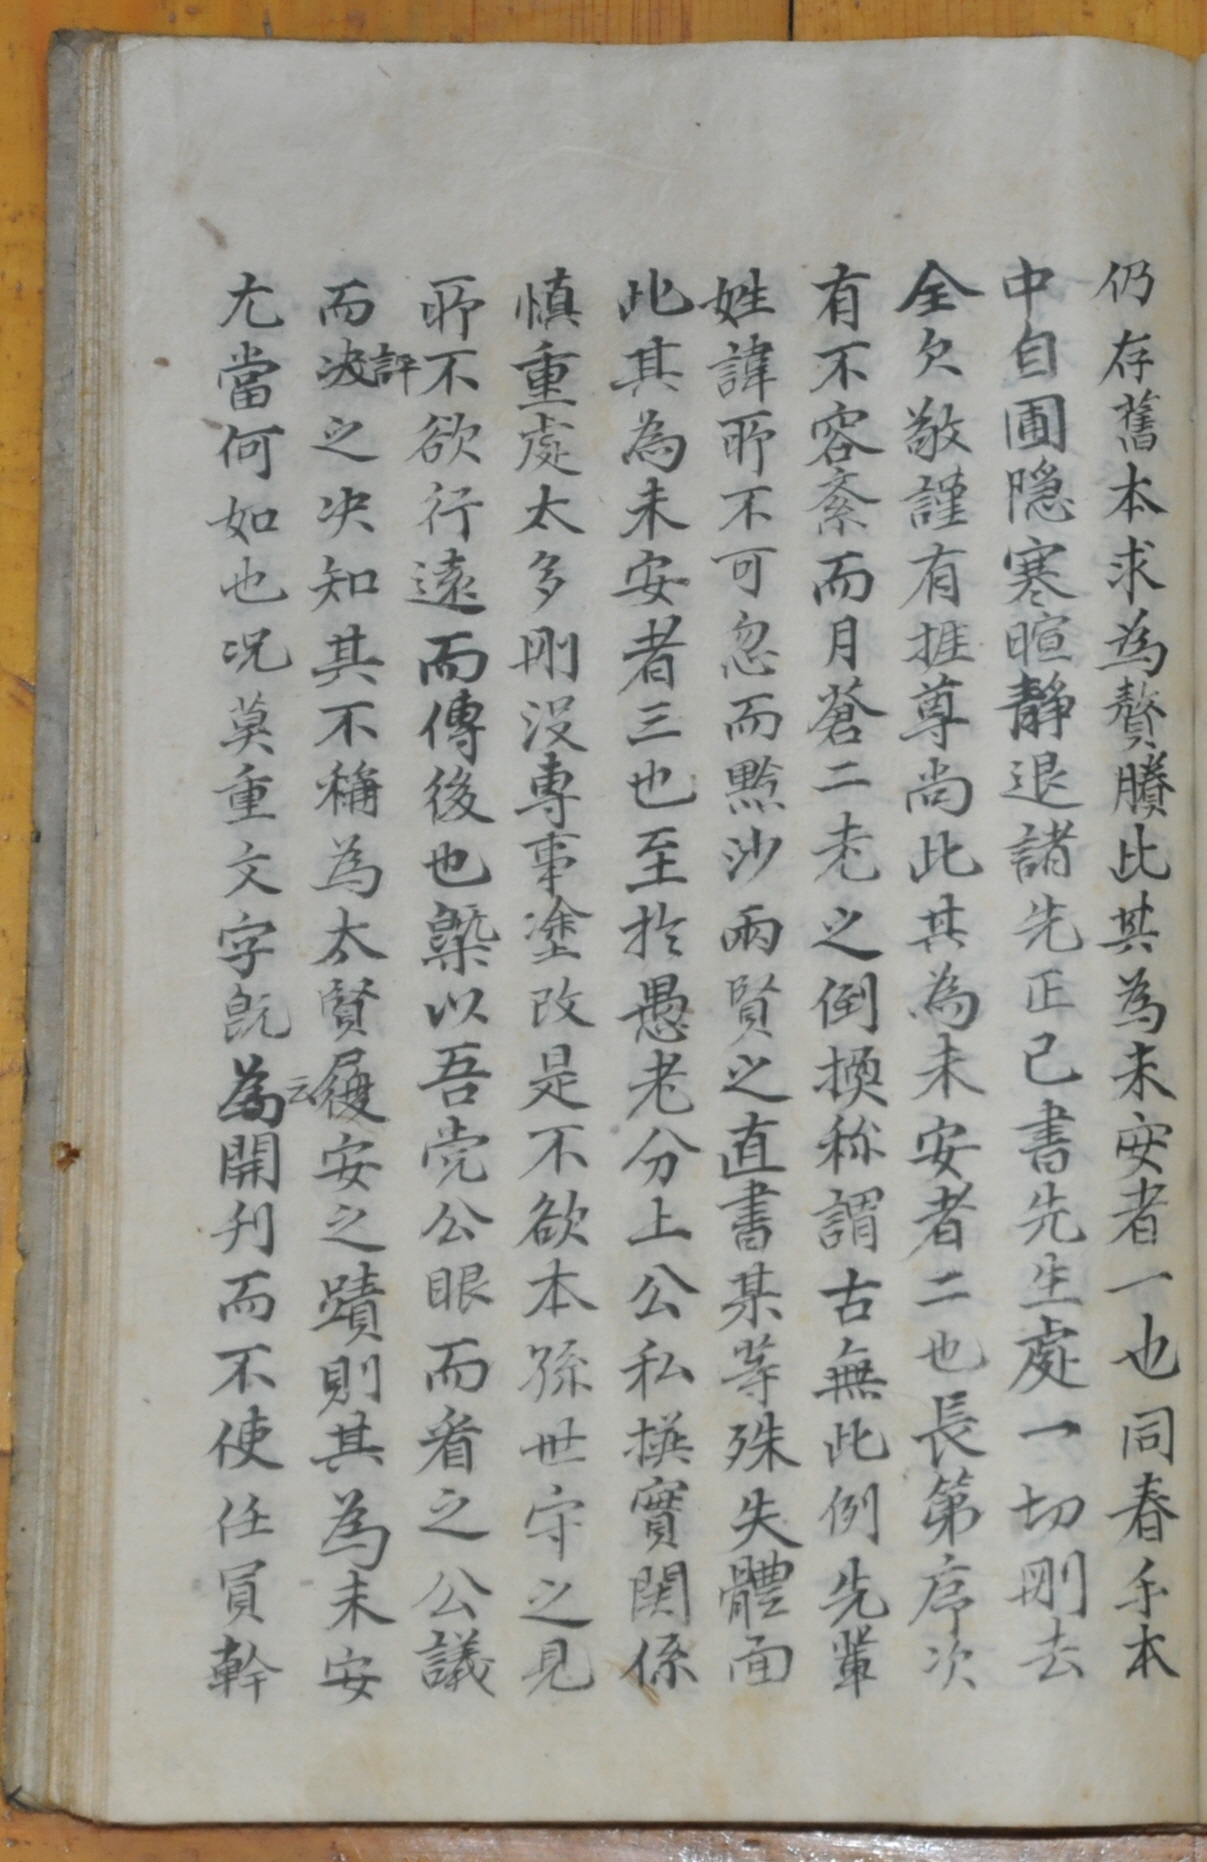 仍存舊本求為贅賸比其為未安者一也同春手本
中自圃隠寒暄静退諸先正已書先生處一切刪去
全欠敬謹有推尊尚此其為未安者二也長第序次
有不容紊而月蒼二老之倒換称謂古無此例先輩
姓諱所不可忽而點沙兩賢之直書某等殊失體面
此其為未安者三也至於愚老分上公私撰實関係
慎重處太多刪没專事塗改是不欲本孫世守之見
所不欲行遠而傳後也槩以吾党公眼而看之公議
而決評之决知其不稱為太賢屨安之蹟則其為未安
尤當何如也况莫重文字既為云開刋而不使任員幹